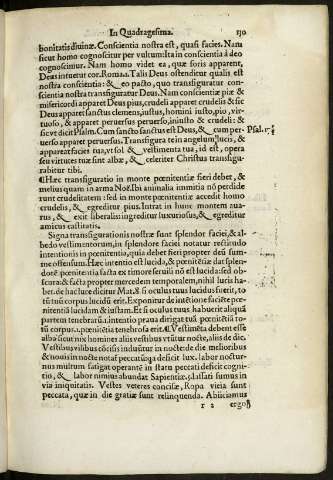 In Quadragesima. 130
bonitatis diuinæ. Conscientia nostra est, quasi facies. Nam
sicut homo cognoscitur per vultum: ita in conscientia à deo
cognoscimur. Nam homo videt ea, quæ foris apparent,
Deus intuetur cor. Talis Deus ostenditur qualis est
nostra conscientia: & eo pacto, quo transfiguratur con-
scientia nostra transfiguratur Deus. Nam conscientiæ piæ &
misericordi apparet Deus pius, crudeli apparet crudelis & sic
Deus apparet sanctus clemens, iustus, homini iusto, pio, vir-
tuoso, & apparet peruersus peruerso, iniusto & crudeli: &
sic vt dicit Psalm. Cum sancto sanctus est Deus, & cum per- Psal. 17
uerso apparet peruersus. Transfigura te in angelum lucis, &
apparet facies tua, vt sol & vestimenta tua, id est, opera
seu virtutes tuæ sint albæ, & celeriter Christus transfigu-
rabitur tibi.
¶Hæc transfiguratio in monte pœnitentiæ fieri debet, &
melius quam in arma Noë. Ibi animalia immitia nõ perdide
runt crudelitatem: sed in monte pœnitentiæ accedit homo
crudelis, & egreditur pius. Intrat in hunc montem aua-
rus, & exit liberalis: ingreditur luxuriosus, & egreditur
amicus castitatis.
Signa transfigurationis nostræ sunt splendor faciei, & al-
bedo vestimentorum, in splendore faciei notatur rectitudo
intentionis in pœnitentia, quia debet fieri propter deũ sum-
me offensum. Hæc intentio est lucida, & pœnitẽtiæ dat splendo-
rẽ pœnitentia facta ex timore seruili nõ est lucida: sed ob-
scura: & facta propter mercedem temporalem, nihil lucis ha-
bet. de hac luce dicitur Mat. 6 si oculus tuus lucidus fuerit, to
tũ tuũ corpus lucidũ erit. Exponitur de intẽtione faciẽte pœ-
nitentiã lucidam & iustam. Et si oculus tuus habuerit aliquã
partem tenebrarũ .i. intentio praua dirigat tuã pœnitẽtiã to-
tũ corpus .i. pœnitẽtia tenebrosa erit. ¶Vestimẽta debent esse
alba sicut nix homines aliis vestibus vtũtur nocte, aliis de die.
Vestibus vilibus cõcisis induũtur in nocte: de die melioribus
& nouis in nocte notat peccatũ qa deficit lux. labor noctur-
nus multum fatigat operantẽ in statu peccati deficit cogni-
tio, & labor nimius abundat Sapientiæ. 5 lassati sumus in
via iniquitatis. Vestes veteres concisæ, Ropa vieia sunt
peccata, quæ in die gratiæ sunt relinquenda. Abiiciamus
r 2 ergo